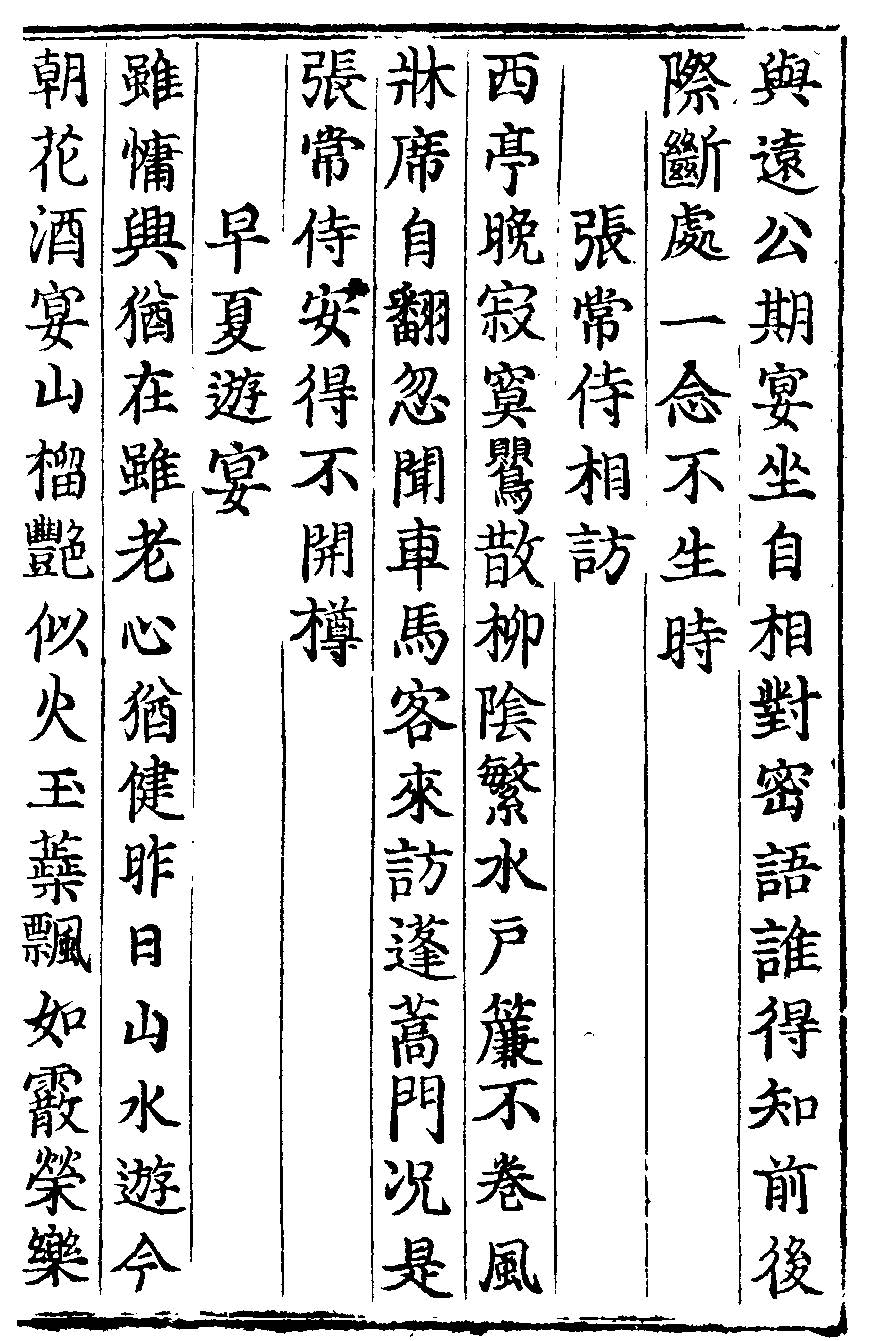 與遠公期宴坐自相對密語誰得知前後
際斷處一念不生時
張常侍相訪
西亭晚寂寞鸎散柳陰繁水戶簾不卷風
牀席自翻忽聞車馬客來訪蓬蒿門况是
張常侍安得不開樽
早夏遊宴
雖慵興猶在雖老心猶健昨日山水遊今
朝花酒宴山榴豔似火玉蘂飄如霰榮樂